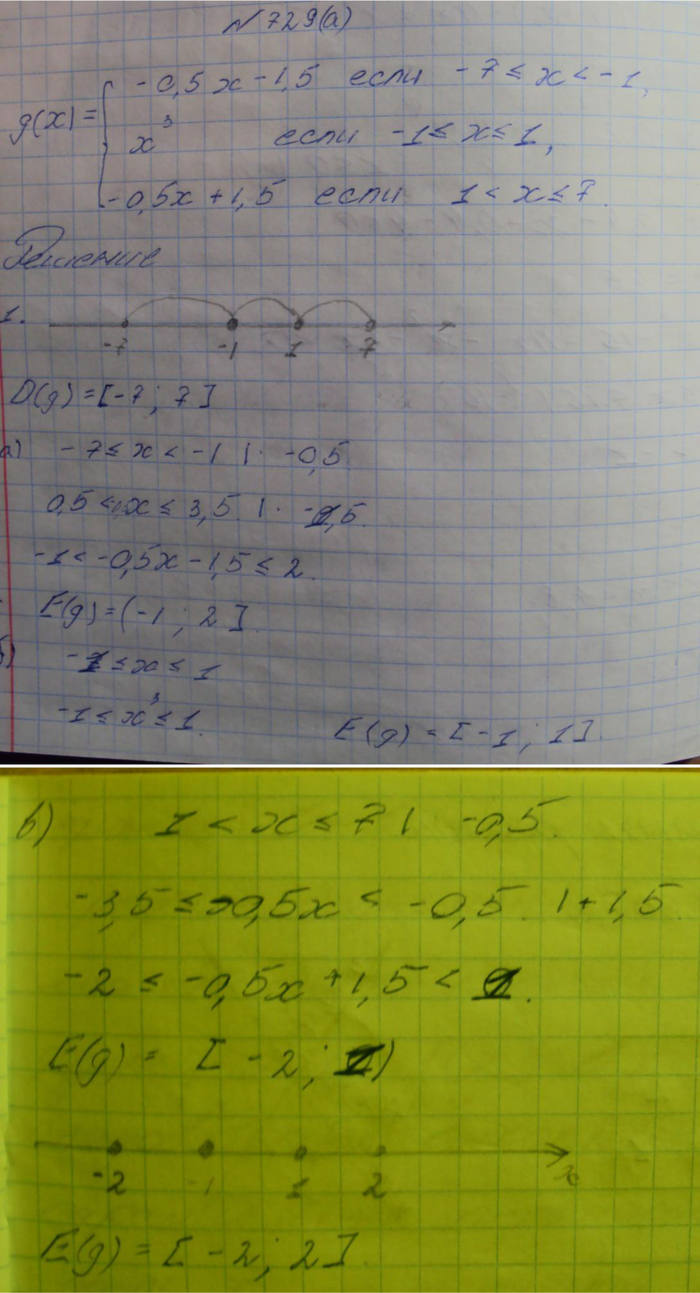 N729(а)
g(x) = { -0,5x - 1,5 если -7 ≤ x < -1,
x³ если -1 ≤ x ≤ 1,
-0,5x + 1,5 если 1 < x ≤ 7.
Решение
1.
-7 -1 1 7
D(g) = [-7; 7]
а) -7 ≤ x < -1 | · -0,5
0,5 < x ≤ 3,5. | · -1,5.
-1 < -0,5x - 1,5 ≤ 2.
E(g) = (-1; 2].
б) -1 ≤ x ≤ 1
-1 ≤ x³ ≤ 1. E(g) = [-1; 1].
в) 1 < x ≤ 7 | -0,5.
-3,5 ≤ -0,5x < -0,5. | + 1,5.
-2 ≤ -0,5x + 1,5 < 1.
E(g) = [-2; 1)
-2 -1 1 2 x
E(g) = [-2; 2].